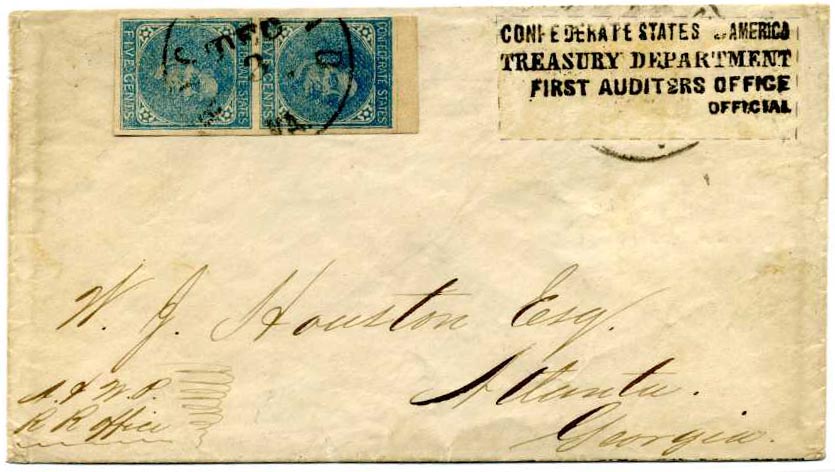 FIVE CENTS
CONFEDERATE STATES
FIVE CENTS
CONFEDERATE STATES
DEC
VA.
CONFEDERATE STATES of AMERICA
TREASURY DEPARTMENT
FIRST AUDITORS OFFICE
OFFICIAL
W. J. Houston Esq.
Atlanta.
Georgia.
A. & W. P.
R R Office